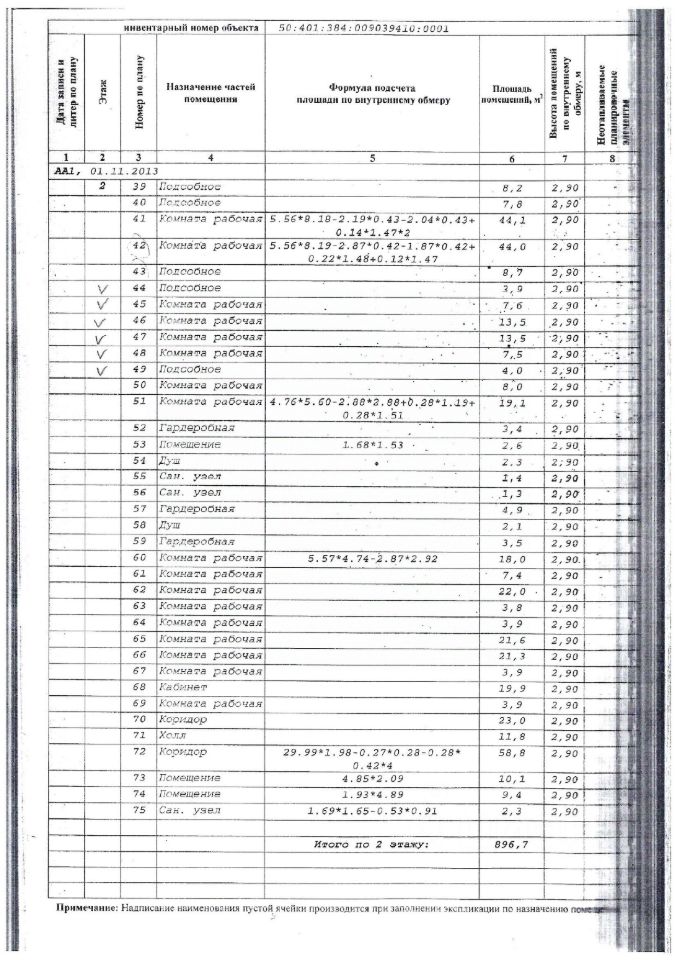 инвентарный номер объекта 50:401:384:009039410:0001
Дата записи и литер по плану
Этаж
Номер по плану
Назначение частей помещения
Формула подсчета площади по внутреннему обмеру
Площадь помещений, м²
Высота помещений по внутреннему обмеру, м
Неотапливаемые планировочные элементы
1 2 3 4 5 6 7 8
АА1, 01.11.2013
2 39 Подсобное 8,2 2,90
40 Подсобное 7,8 2,90
41 Комната рабочая 5.56*8.18-2.19*0.43-2.04*0.43+ 44,1 2,90
0.14*1.47*2
42 Комната рабочая 5.56*8.19-2.87*0.42-1.87*0.42+ 44,0 2,90
0.22*1.48+0.12*1.47
43 Подсобное 8,7 2,90
44 Подсобное 3,9 2,90
45 Комната рабочая 7,6 2,90
46 Комната рабочая 13,5 2,90
47 Комната рабочая 13,5 2,90
48 Комната рабочая 7,5 2,90
49 Подсобное 4,0 2,90
50 Комната рабочая 8,0 2,90
51 Комната рабочая 4.76*5.60-2.88*2.88+0.28*1.19+ 19,1 2,90
0.28*1.51
52 Гардеробная 3,4 2,90
53 Помещение 1.68*1.53 2,6 2,90
54 Душ 2,3 2,90
55 Сан. узел 1,4 2,90
56 Сан. узел 1,3 2,90
57 Гардеробная 4,9 2,90
58 Душ 2,1 2,90
59 Гардеробная 3,5 2,90
60 Комната рабочая 5.57*4.74-2.87*2.92 18,0 2,90
61 Комната рабочая 7,4 2,90
62 Комната рабочая 22,0 2,90
63 Комната рабочая 3,8 2,90
64 Комната рабочая 3,9 2,90
65 Комната рабочая 21,6 2,90
66 Комната рабочая 21,3 2,90
67 Комната рабочая 3,9 2,90
68 Кабинет 19,9 2,90
69 Комната рабочая 3,9 2,90
70 Коридор 23,0 2,90
71 Холл 11,8 2,90
72 Коридор 29.99*1.98-0.27*0.28-0.28* 58,8 2,90
0.42*4
73 Помещение 4.85*2.09 10,1 2,90
74 Помещение 1.93*4.89 9,4 2,90
75 Сан. узел 1.69*1.65-0.53*0.91 2,3 2,90
Итого по 2 этажу: 896,7
Примечание: Надписание наименования пустой ячейки производится при заполнении экспликации по назначению